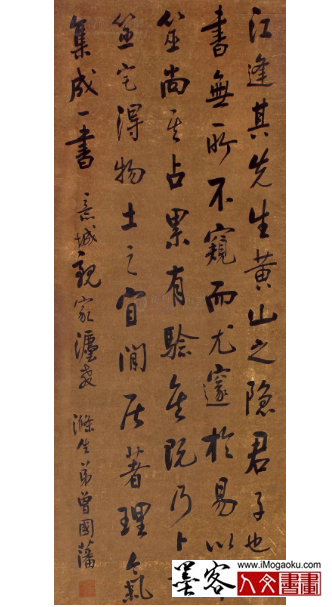 江逢其先生黃山之隐君子也
書無所不窺而尤邃於易以
筮尚其占累有驗矣既乃卜
筮宅得物土之宜閒居著理氣
集成一書 意城親家 滌生弟曾國藩
www.iMogaoku.com
墨客人文書畫